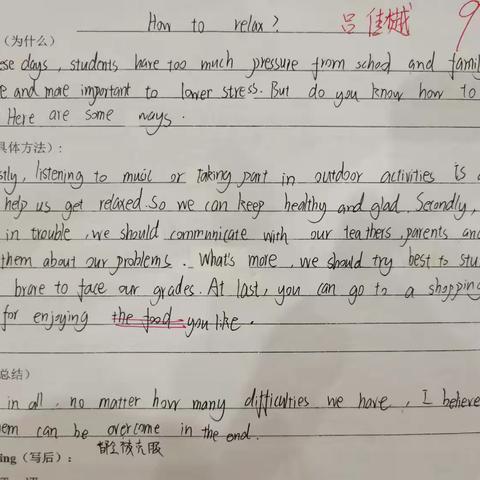 How to relax? 吕佳樾 9
(为什么)
ese days, students have too much pressure from school and famil
e and more important to lower stress. But do you know how to
Here are some ways.
具体方法):
stly, listening to music or taking part in outdoor activities is
help us get relaxed. So we can keep healthy and glad. Secondly,
in trouble, we should communicate with our teathers, parents and
them about our problems. What's more, we should try best to stu
brave to face our grades. At last, you can go to a shopping
for enjoying the food you like.
总结)
in all, no matter how many difficulties we have, I believe
em can be overcome in the end.
ing (写后):